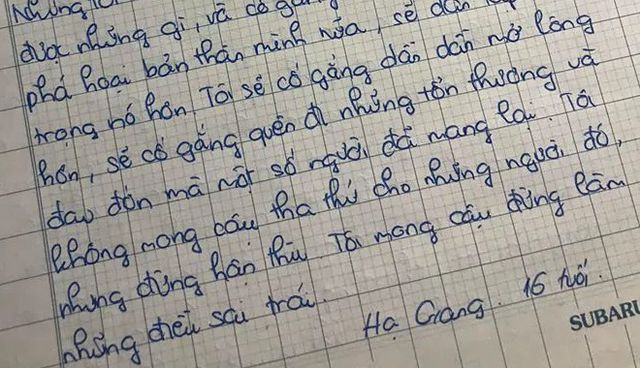 được những gì, và cố
phá hoại bản thân mình nữa, sẽ
trọng nó hơn. Tôi sẽ cố gắng dần dần mở lòng
hơn, sẽ cố gắng quên đi những tổn thương và
đau đớn mà một số người đã mang lại. Tôi
không mong cậu tha thứ cho những người đó,
nhưng đừng hận thù. Tôi mong cậu đừng làm
những điều sai trái.
Hạ Giang. 16 tuổi.
SUBARU